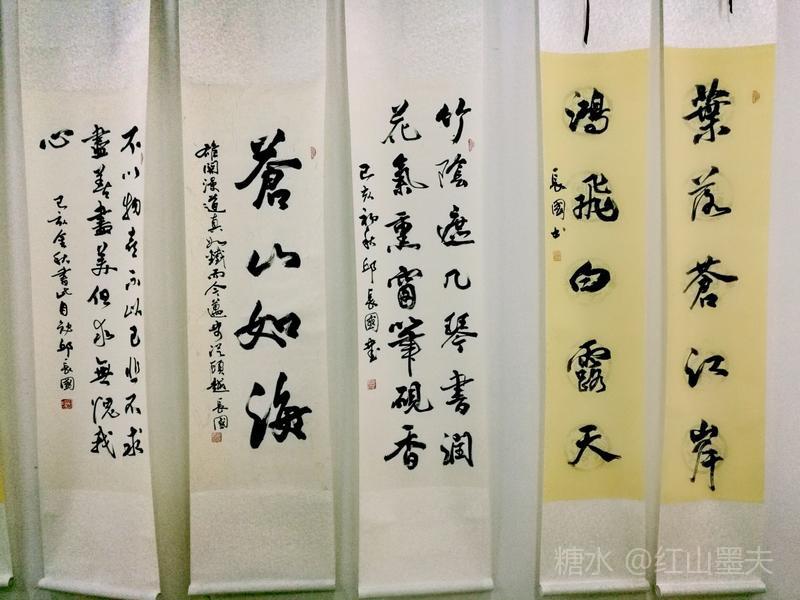 葉落蒼江岸
鴻飛白露天
長國书
竹陰遮几琴書潤
花氣熏窗筆硯香
己亥初秋邱長國書
蒼山如海
雄関漫道真如鐵而今邁步從頭越長國
不以物喜不以己悲不求
盡善盡美但求無愧我
心
己亥金秋書此自邱長國
糖水 @红山墨夫